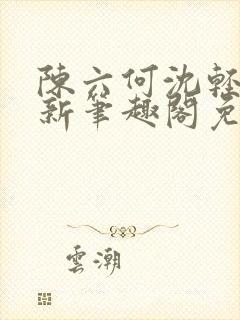 陳六何沈輕
新筆趣閣免
雲潮